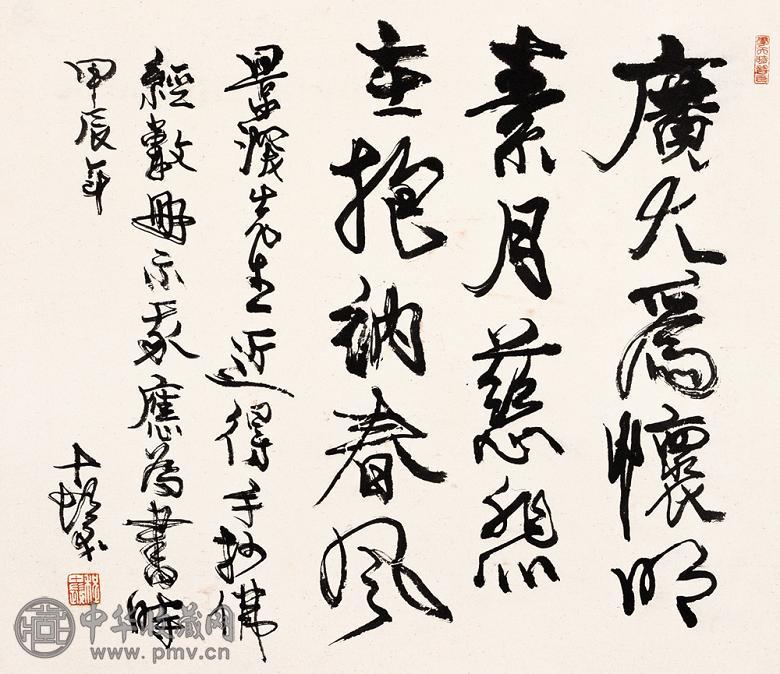 廣大爲懷明
素月慈悲
在抱納春風
景先生近得手抄佛
經數冊示我應為書時
甲辰年
中华收藏网
www.pmv.cn